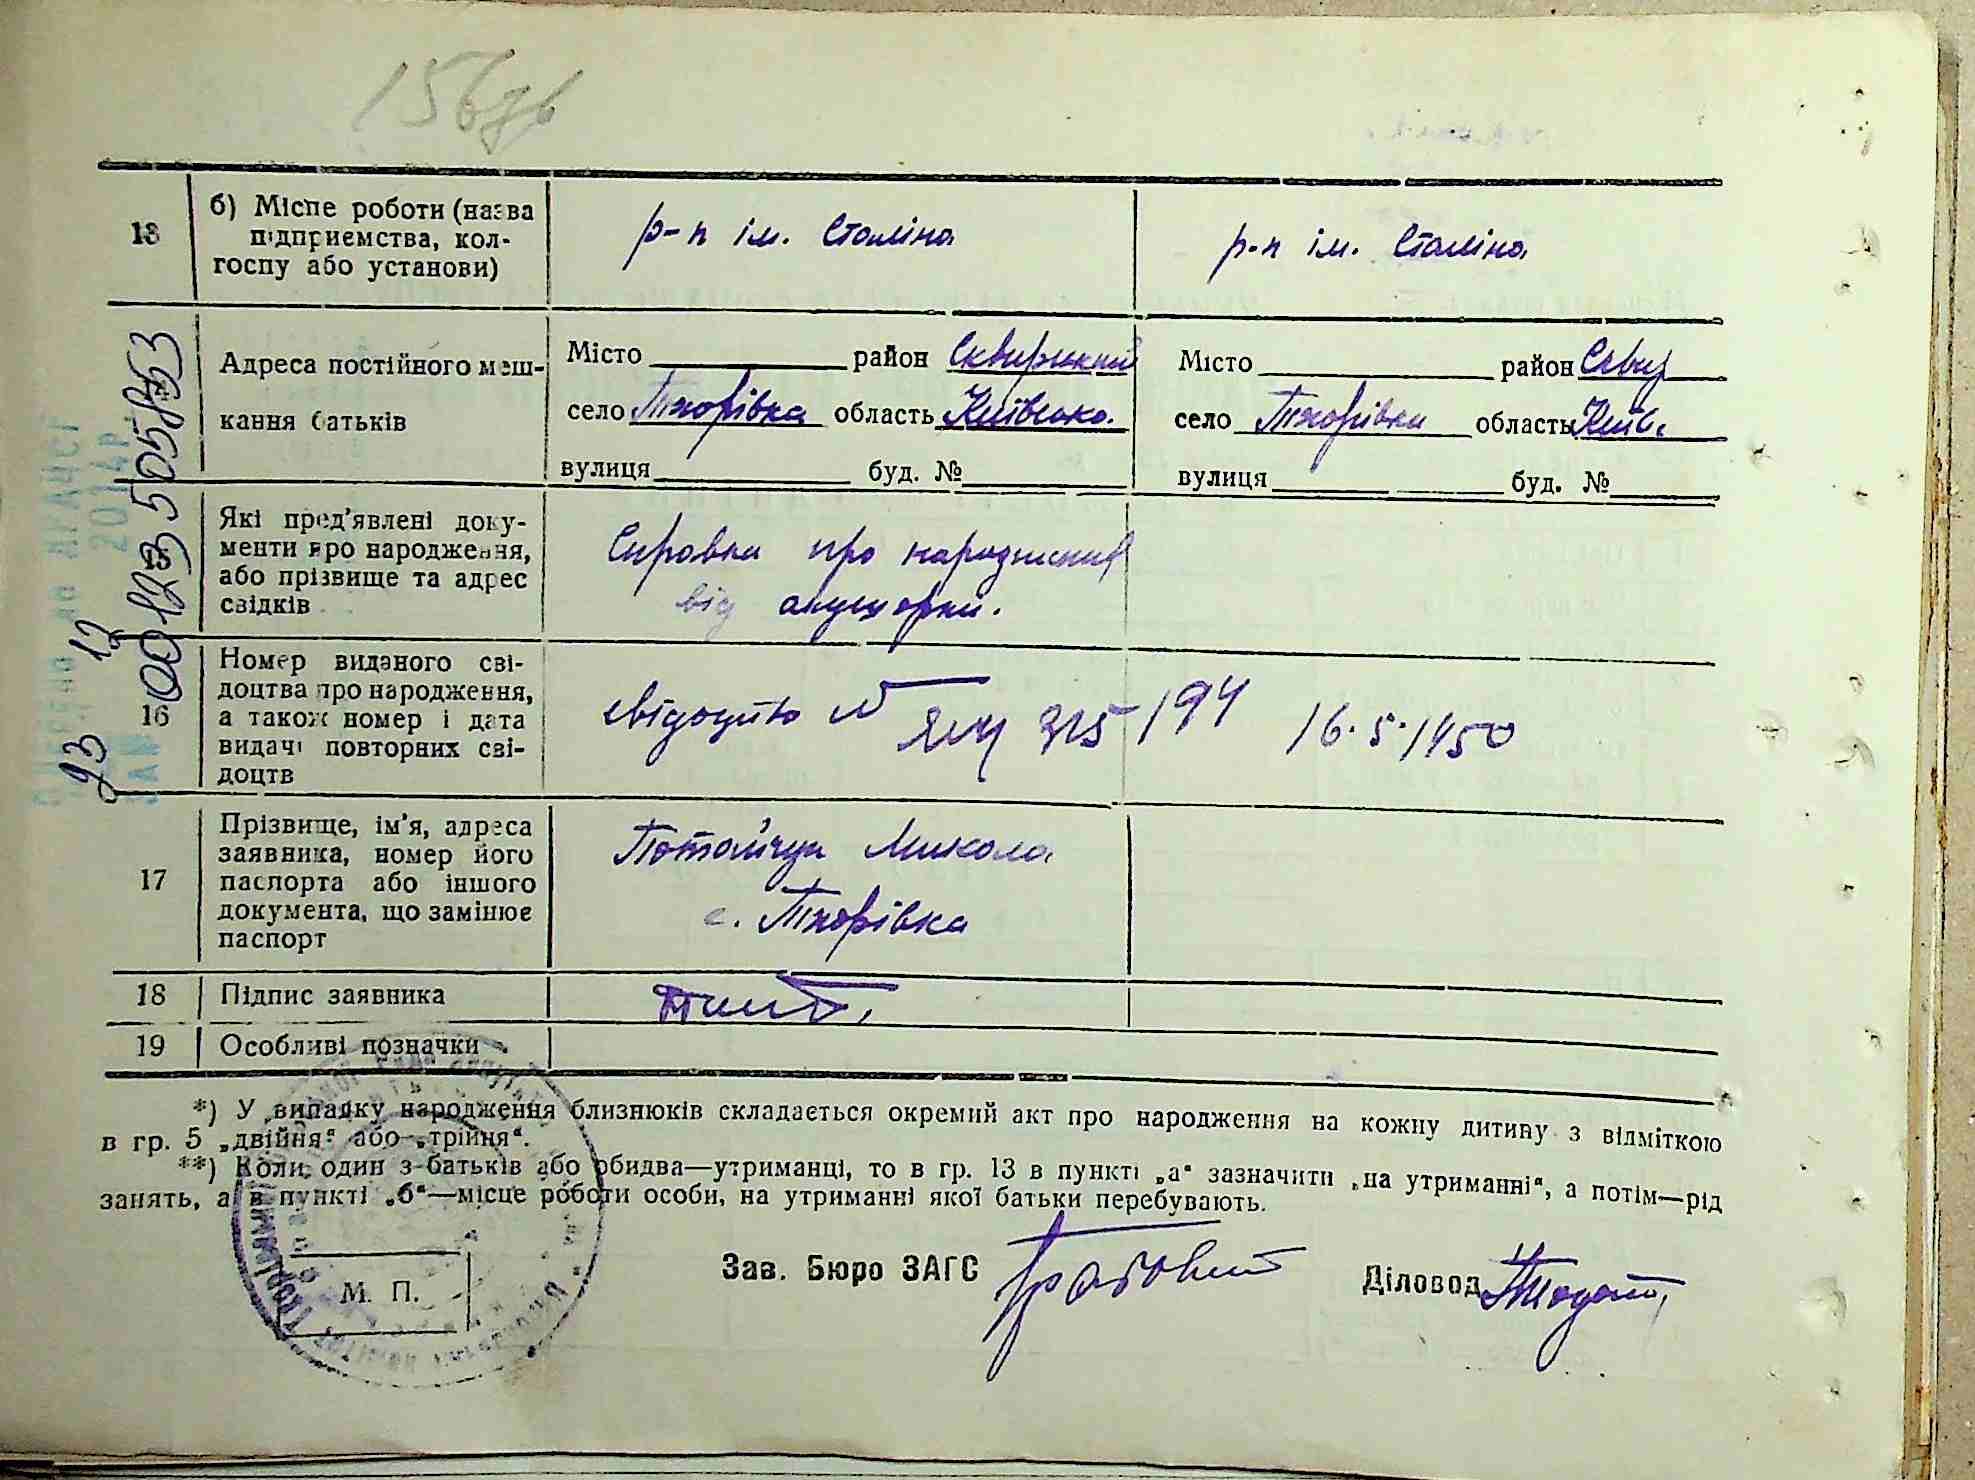 156зв
13
б) Місце роботи (назва
підприємства, кол-
госпу або установи)
р-п ім. Сталіна
р-п ім. Сталіна
Адреса постійного меш-
кання батьків
Місто район Сквирський
село Тхорівка область Київсько.
вулиця буд. №
Місто район Сквир
село Тхорівка область Київ.
вулиця буд. №
15
Які пред'явлені доку-
менти про народження,
або прізвище та адрес
свідків
Справка про народження
від акушерки.
16
Номер виданого сві-
доцтва про народження,
а також номер і дата
видачі повторних сві-
доцтв
свідоцтво № 315194 16.5.1950
17
Прізвище, ім'я, адреса
заявника, номер його
паспорта або іншого
документа, що замінює
паспорт
Микола
с. Тхорівка
18
Підпис заявника
19
Особливі позначки
*) У випадку народження близнюків складається окремий акт про народження на кожну дитину з відміткою
в гр. 5 „двійня“ або „трійня“.
**) Коли один з батьків або обидва—утриманці, то в гр. 13 в пункті „а“ зазначити „на утриманні“, а потім—рід
занять, а в пункті „б“—місце роботи особи, на утриманні якої батьки перебувають.
Зав. Бюро ЗАГС
Діловод
М. П.
00123505853
2014р